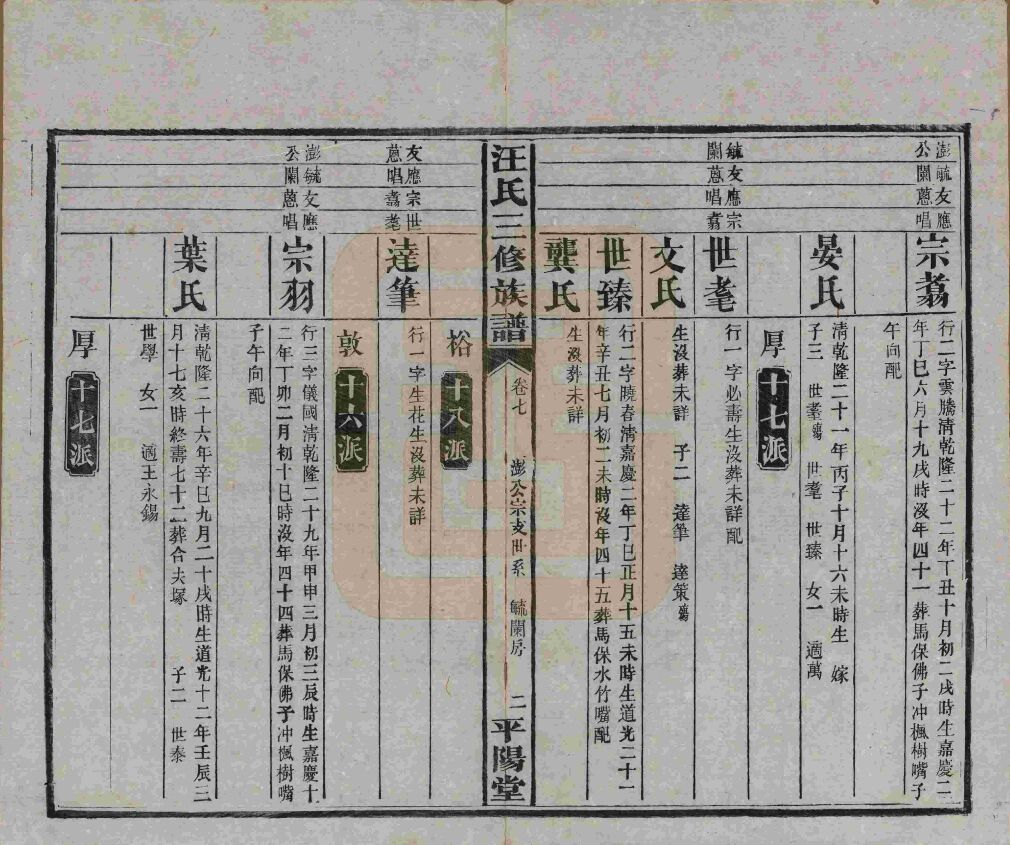 澎毓友應
公闌蔥唱
宗翥
行二字雲騰清乾隆二十二年丁丑十月初二戌時生嘉慶二
年丁巳六月十九戌時沒年四十一葬馬保佛子冲楓樹嘴子
午向配
晏氏
清乾隆二十一年丙子十月十六未時生 嫁
子三 世耋殤 世耄 世臻 女一 適萬
厚 十七派
毓友應宗
闌蔥唱翥
世耄
行一字必壽生沒葬未詳配
文氏
生沒葬未詳 子二 達筆 達策殤
世臻
行二字曉春清嘉慶二年丁巳正月十五未時生道光二十一
年辛丑七月初二未時沒年四十五葬馬保水竹嘴配
龔氏
生沒葬未詳
汪氏三修族譜 卷七 澎公宗支世系 毓闌房 二 平陽堂
裕 十八派
友應宗世
蔥唱翥耄
達筆
行一字生花生沒葬未詳
敦 十六派
澎毓友應
公闌蔥唱
宗羽
行三字儀國清乾隆二十九年甲申三月初三辰時生嘉慶十
二年丁卯二月初十巳時沒年四十四葬馬保佛子冲楓樹嘴
子午向配
葉氏
清乾隆二十六年辛巳九月二十戌時生道光十二年壬辰三
月十七亥時終壽七十二葬合夫塚 子二 世泰
世學 女一 適王永錫
厚 十七派